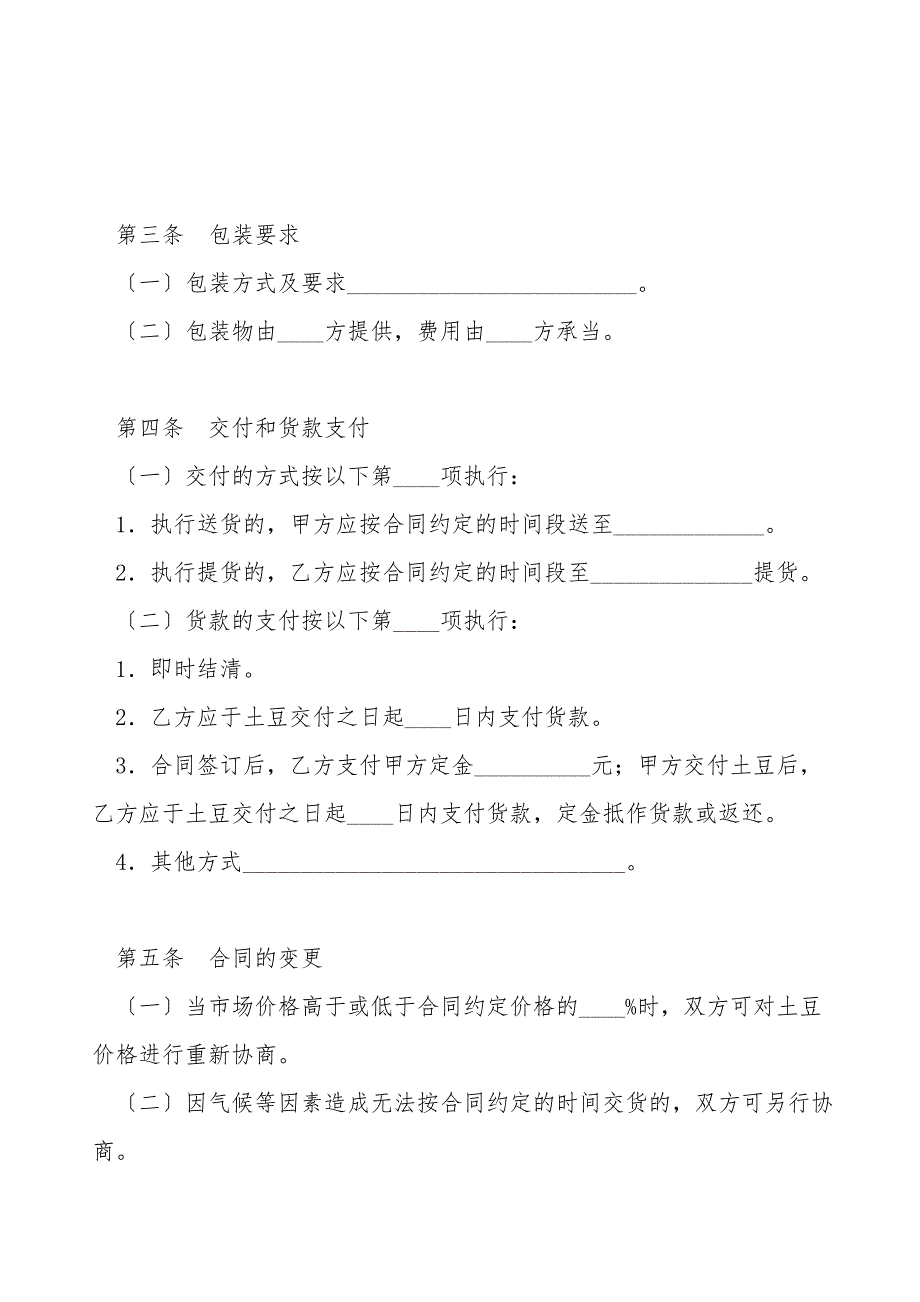 第三条　包装要求
〔一〕包装方式及要求_________________________。
〔二〕包装物由____方提供，费用由____方承当。
第四条　交付和货款支付
〔一〕交付的方式按以下第____项执行：
1．执行送货的，甲方应按合同约定的时间段送至_____________。
2．执行提货的，乙方应按合同约定的时间段至______________提货。
〔二〕货款的支付按以下第____项执行：
1．即时结清。
2．乙方应于土豆交付之日起____日内支付货款。
3．合同签订后，乙方支付甲方定金__________元；甲方交付土豆后，
乙方应于土豆交付之日起____日内支付货款，定金抵作货款或返还。
4．其他方式_________________________________。
第五条　合同的变更
〔一〕当市场价格高于或低于合同约定价格的____%时，双方可对土豆
价格进行重新协商。
〔二〕因气候等因素造成无法按合同约定的时间交货的，双方可另行协
商。